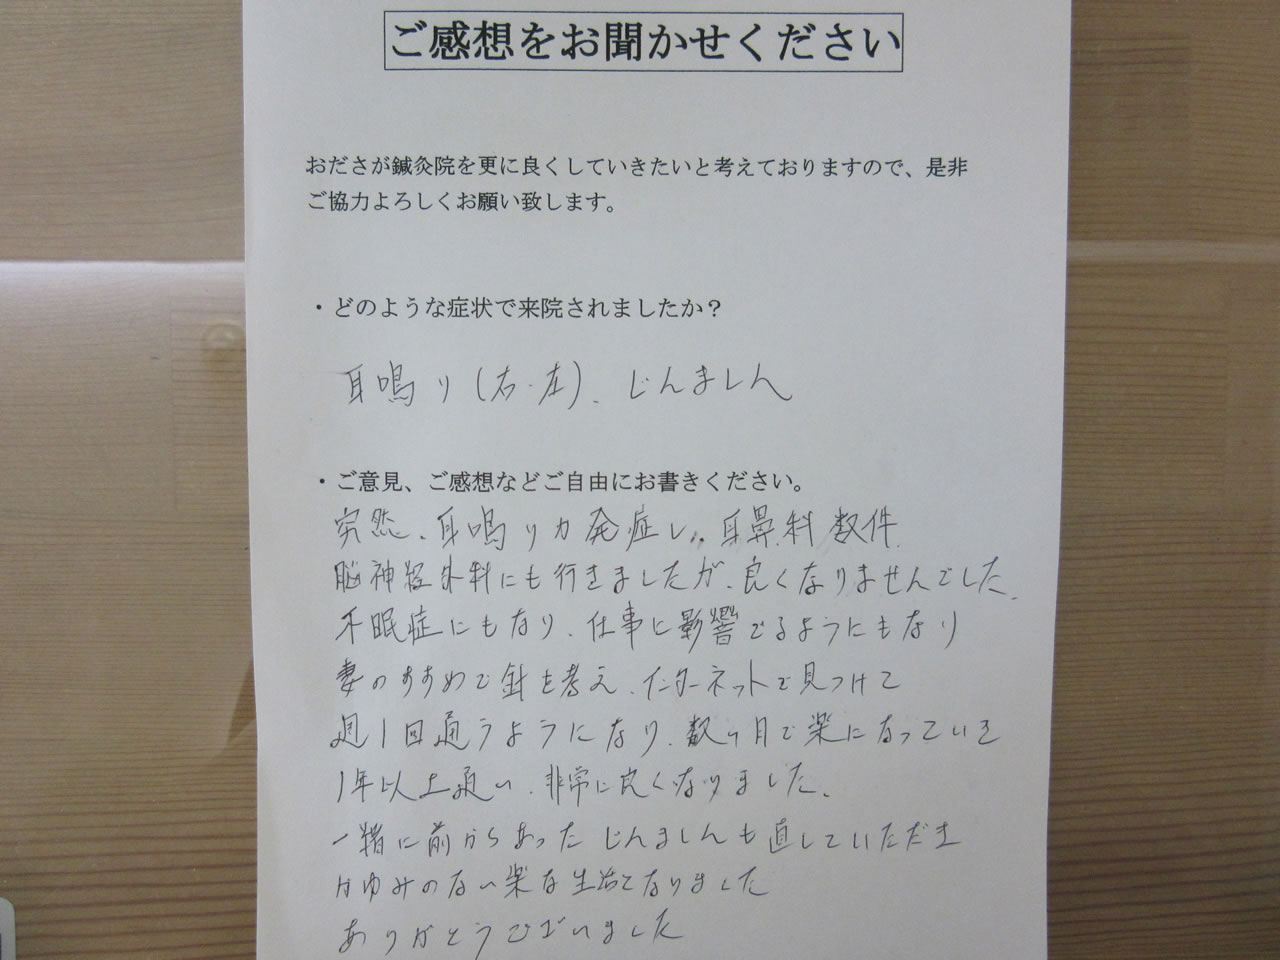 ご感想をお聞かせください
おださが鍼灸院を更に良くしていきたいと考えておりますので、是非
ご協力よろしくお願い致します。
・どのような症状で来院されましたか？
耳鳴り(右・左)、じんましん
・ご意見、ご感想などご自由にお書きください。
突然、耳鳴りが発症し、耳鼻科数件
脳神経外科にも行きましたが、良くなりませんでした、
不眠症にもなり、仕事に影響でるようにもなり
妻のすすめで針を考え、インターネットで見つけて
週1回通うようになり、数ヶ月で楽になっていき
1年以上通い、非常に良くなりました、
一緒に前からあったじんましんも直していただき
かゆみのない楽な生活となりました
ありがとうございました